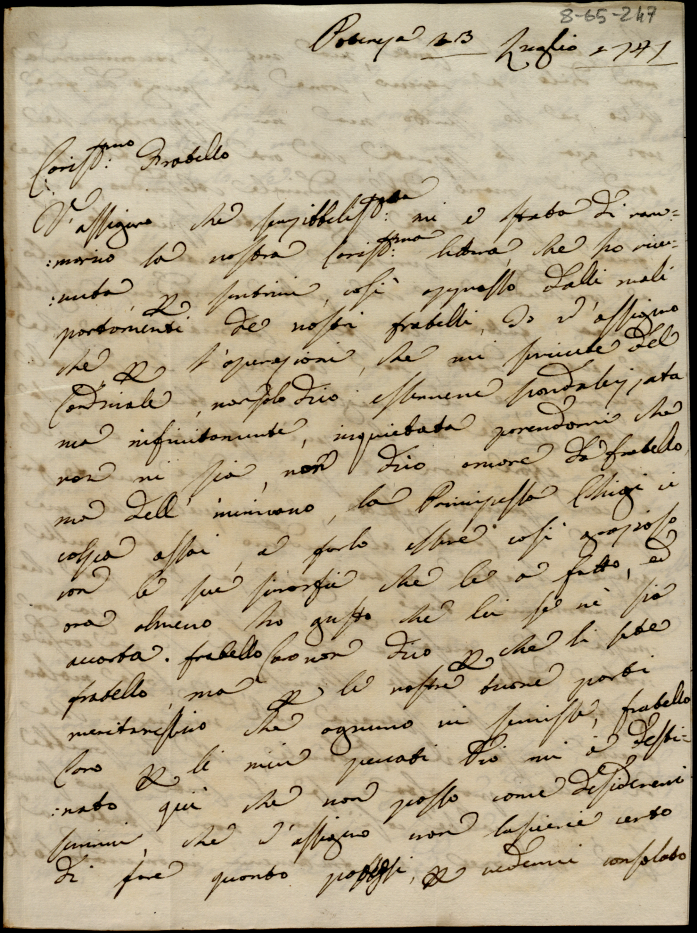 8-65-247
Potenza 23 Luglio 1747
Caris.mo Fratello
V'assiguro che sensibbelis.ma mi è stata di ram=
:marico la vostra Caris.ma littera, che ho rice=
:vuta, per sentirvi, così oppresso dalli mali
portamenti de nostri fratelli, Io v'assiguro
che per l'operazioni, che mi scrivete del
Cardinale, non solo dico esserne scandalizzata
ma infinitamente, inquietata parendomi che
non vi sia, non dico amore da fratello
ma dell' inimicho, la Principessa Chigi ci
colpa assai, a farlo essere così
con le sue smorfie che le a fatto, ed
ora almeno ho gusto che lei se ne sia
accorta. fratello Caro non dico per che li sete
fratello, ma per le vostre buone parti
meritarissivo che ognuno vi servisse, fratello
Caro per li miei peccati Dio mi à desti=
:nato qui che non posso come desiderarei
servirvi, che v'assiguro non lascierei certo
di fare quanto potessi, per vedervi consolato